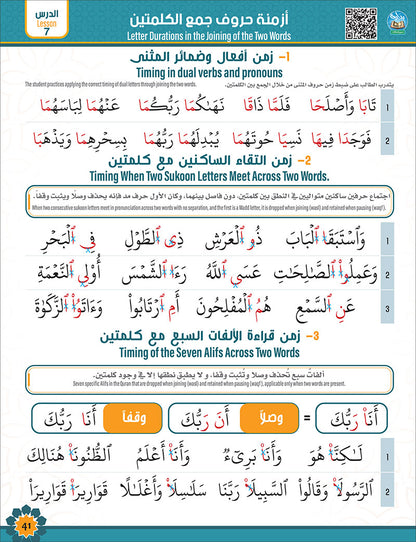 الدرس
Lesson
7
أزمنة حروف جمع الكلمتين
Letter Durations in the Joining of the Two Words
1- زمن أفعال وضمائر المثنى
Timing in dual verbs and pronouns
يتدرب الطالب على ضبط زمن حروف المثنى من خلال الجمع بين الكلمتين.
The student practices applying the correct timing of dual letters through joining the two words.
1 تَابَا وَأَصْلَحَا فَلَمَّا ذَاقَا نَهَىٰكُمَا رَبُّكُمَا عَنْهُمَا لِبَاسَهُمَا
2 فَوَجَدَا فِيهَا نَسِيَا حُوتَهُمَا يُبْدِلَهُمَا رَبُّهُمَا بِسِحْرِهِمَا وَيَذْهَبَا
2- زمن التقاء الساكنين مع كلمتين
Timing When Two Sukoon Letters Meet Across Two Words.
اجتماع حرفين ساكنين متواليين في النطق بين كلمتين، دون فاصل بينهما، وكان الأول حرف مد فإنه يحذف وصلًا ويثبت وقفًا.
When two consecutive sukoon letters meet in pronunciation across two words with no separation, and the first is a Madd letter, it is dropped when joining (wasl) and retained when pausing (waqf).
1 وَٱسْتَبَقَا ٱلْبَابَ ذُو ٱلْعَرْشِ ذِي ٱلطَّوْلِ فِي ٱلْبَحْرِ
2 وَعَمِلُوا۟ ٱلصَّـٰلِحَـٰتِ عَسَى ٱللَّهُ رَءَا ٱلشَّمْسَ أُو۟لِي ٱلنَّعْمَةِ
3 عَنِ ٱلسَّمْعِ هُمُ ٱلْمُفْلِحُونَ أَمِ ٱرْتَابُوٓا۟ وَءَاتَوُا۟ ٱلزَّكَوٰةَ
3- زمن قراءة الألفات السبع مع كلمتين
Timing of the Seven Alifs Across Two Words
ألفات سبع تُحذف وصلًا وتُثبت وقفًا، و لا يطبق نطقها إلا في وجود كلمتين.
Seven specific Alifs in the Quran that are dropped when joining (wasl) and retained when pausing (waqf), applicable only when two words are present.
أَنَا۠ رَبُّكَ = وصلاً أَنَ رَبُّكَ وقفاً أَنَا رَبُّكَ
1 لَـٰكِنَّا۠ هُوَ وَأَنَا۠ بَرِىٓءٌ وَأَنَا۠ أَعْلَمُ ٱلظُّنُونَا۠ هُنَالِكَ
2 ٱلرَّسُولَا۠ وَقَالُوا۟ ٱلسَّبِيلَا۠ رَبَّنَا سَلَـٰسِلَا۟ وَأَغْلَـٰلًا قَوَارِيرَا۠ قَوَارِيرَا۟
41